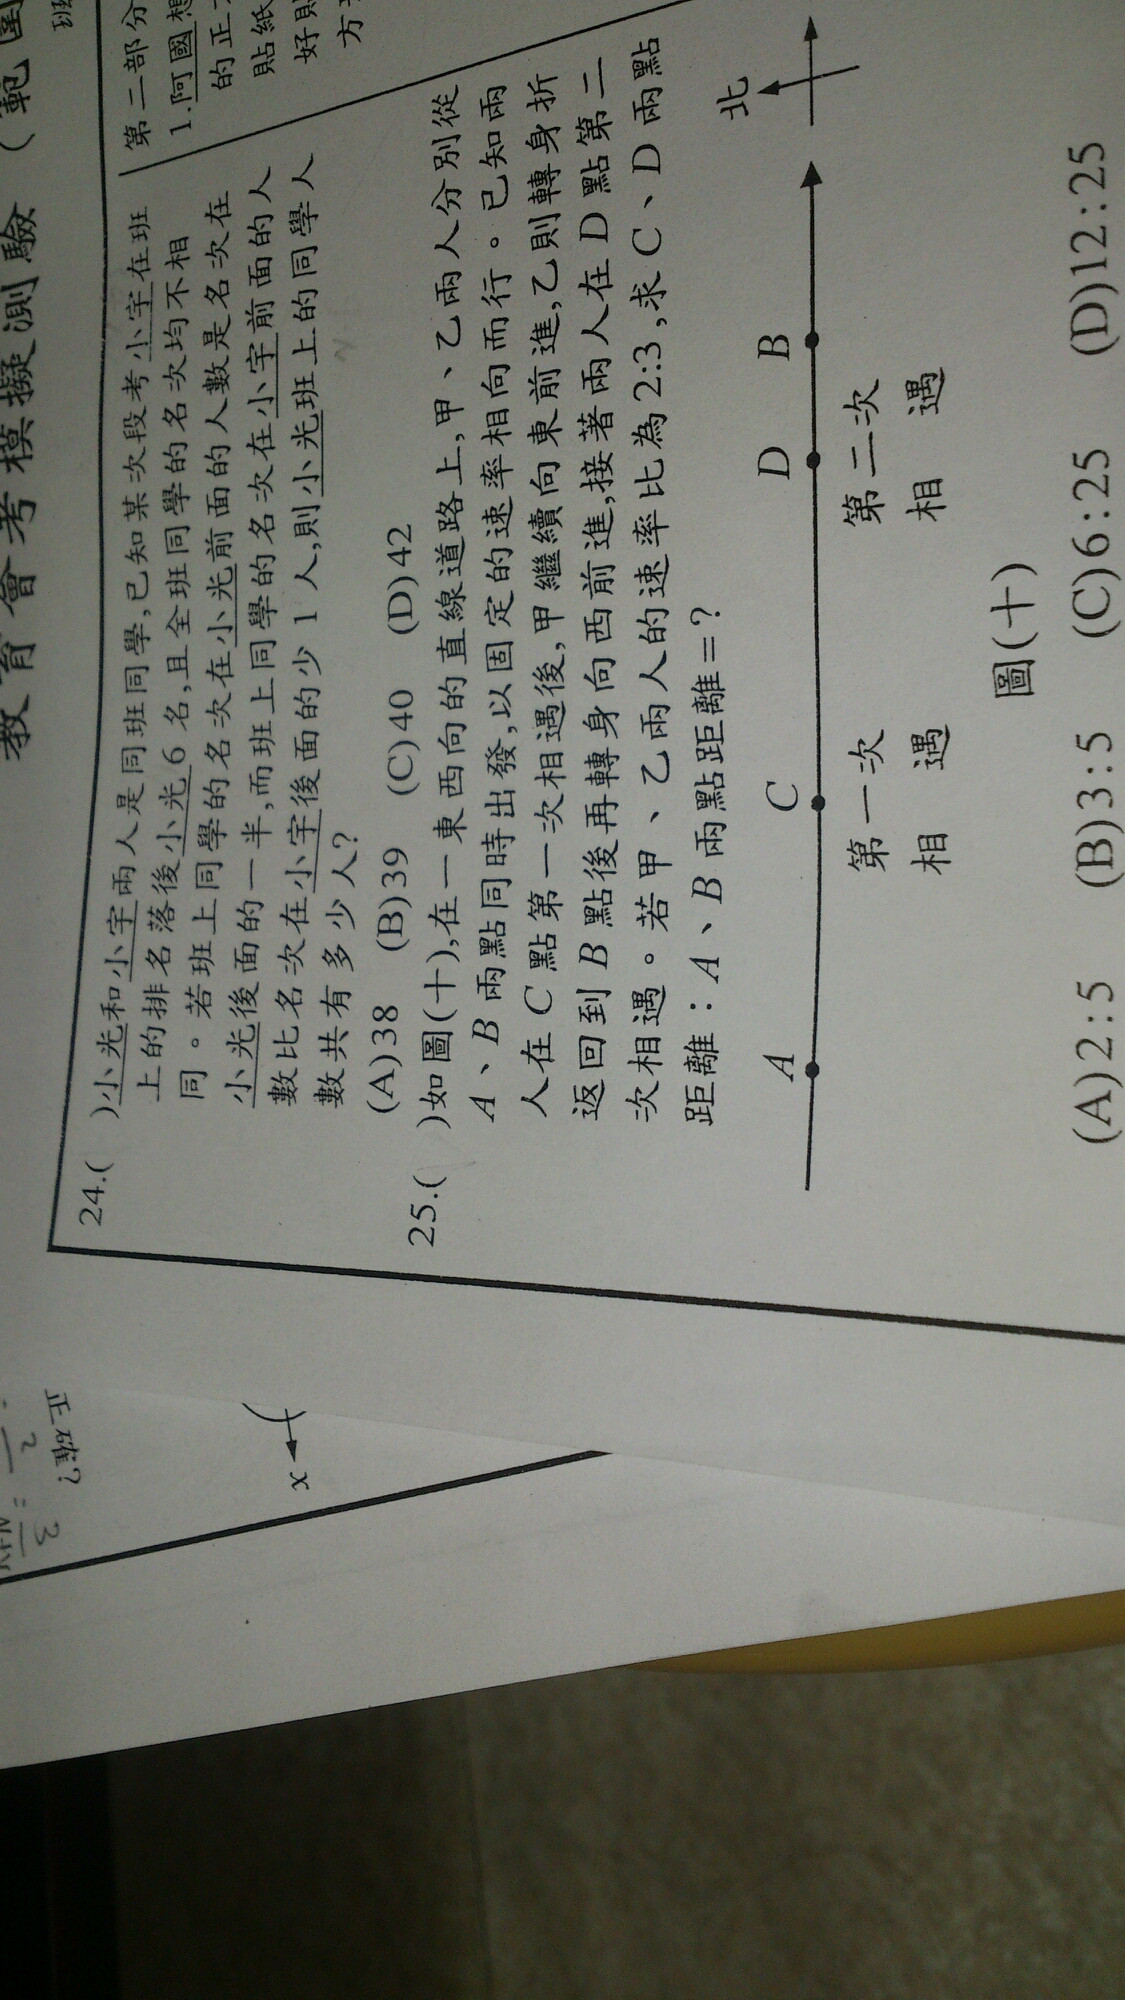 教育會考模擬測驗（範圍
班
第二部分
1.阿國想
的正
貼紙
好貼
方
24.(　)小光和小宇兩人是同班同學,已知某次段考小宇在班
上的排名落後小光6名,且全班同學的名次均不相
同。若班上同學的名次在小光前面的人數是名次在
小光後面的一半,而班上同學的名次在小宇前面的人
數比名次在小宇後面的少1人,則小光班上的同學人
數共有多少人?
(A)38 (B)39 (C)40 (D)42
25.(　)如圖(十),在一東西向的直線道路上,甲、乙兩人分別從
A、B兩點同時出發,以固定的速率相向而行。已知兩
人在C點第一次相遇後,甲繼續向東前進,乙則轉身折
返回到B點後再轉身向西前進,接著兩人在D點第二
次相遇。若甲、乙兩人的速率比為2:3,求C、D兩點
距離:A、B兩點距離=?
北
A C D B
第一次 第二次
相 遇 相 遇
圖(十)
(A)2:5 (B)3:5 (C)6:25 (D)12:25
x
正確?